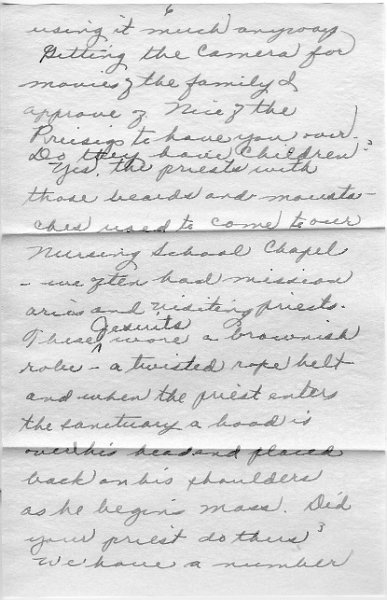 6
using it much anyway
Getting the camera for
movies of the family I
approve of. Nice of the
Preisigs to have you over.
Do they have children?
Yes, the priests with
those beards and mousta-
ches used to come to our
Nursing School Chapel
- we often had mission
aries and visiting priests.
These Jesuits wore a brownish
robe - a twisted rope belt
and when the priest enters
the sanctuary a hood is
over his head and placed
back on his shoulders
as he begins mass. Did
your priest do thus?
We have a number